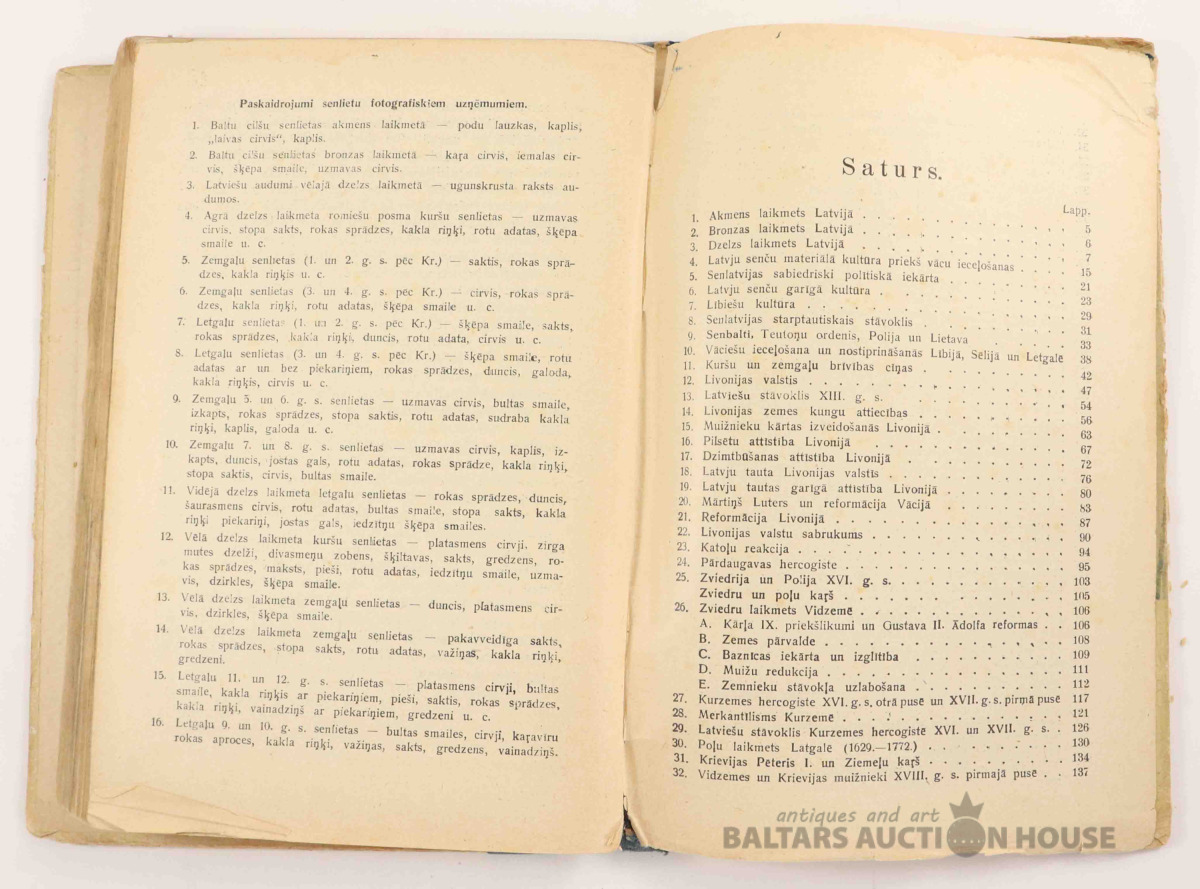 Paskaidrojumi senlietu fotografiskiem uzņēmumiem.
1. Baltu cilšu senlietas akmens laikmetā — podu lauzkas, kaplis,
„laivas cirvis“, kaplis.
2. Baltu cilšu senlietas bronzas laikmetā — kaŗa cirvis, iemalas cir-
vis, šķēpa smaile, uzmavas cirvis.
3. Latviešu audumi vēlajā dzelzs laikmetā — ugunskrusta raksts au-
dumos.
4. Agrā dzelzs laikmeta romiešu posma kuršu senlietas — uzmavas
cirvis, stopa sakts, rokas sprādzes, kakla riņķi, rotu adatas, šķēpa
smaile u. c.
5. Zemgaļu senlietas (1. un 2. g. s. pēc Kr.) — saktis, rokas sprā-
dzes, kakla riņķis u. c.
6. Zemgaļu senlietas (3. un 4. g. s. pēc Kr.) — cirvis, rokas sprā-
dzes, kakla riņķi, rotu adatas, šķēpa smaile u. c.
7. Letgaļu senlietas (1. un 2. g. s. pēc Kr.) — šķēpa smaile, sakts,
rokas sprādzes, kakla riņķi, duncis, rotu adata, cirvis u. c.
8. Letgaļu senlietas (3. un 4. g. s. pēc Kr.) — šķēpa smaile, rotu
adatas ar un bez piekariņiem, rokas sprādzes, duncis, galoda,
kakla riņķis, cirvis u. c.
9. Zemgaļu 5. un 6. g. s. senlietas — uzmavas cirvis, bultas smaile,
izkapts, rokas sprādzes, stopa saktis, rotu adatas, sudraba kakla
riņķi, kaplis, galoda u. c.
10. Zemgaļu 7. un 8. g. s. senlietas — uzmavas cirvis, kaplis, iz-
kapts, duncis, jostas gals, rotu adatas, rokas sprādze, kakla riņķi,
stopa saktis, cirvis, bultas smaile.
11. Vidējā dzelzs laikmeta letgaļu senlietas — rokas sprādzes, duncis,
šaurasmens cirvis, rotu adatas, bultas smaile, stopa sakts, kakla
riņķi piekariņi, jostas gals, iedzītņu šķēpa smailes.
12. Vēlā dzelzs laikmeta kuršu senlietas — platasmens cirvji, zirga
mutes dzelži, divasmeņu zobens, šķiltavas, sakts, gredzens, ro-
kas sprādzes, maksts, pieši, rotu adatas, iedzītņu smaile, uzma-
vis, dzirkles, šķēpa smaile.
13. Vēlā dzelzs laikmeta zemgaļu senlietas — duncis, platasmens cir-
vis, dzirkles, šķēpa smaile.
14. Vēlā dzelzs laikmeta zemgaļu senlietas — pakavveidīga sakts,
rokas sprādzes, stopa sakts, rotu adatas, važiņas, kakla riņķi,
gredzeni.
15. Letgaļu 11. un 12. g. s. senlietas — platasmens cirvji, bultas
smaile, kakla riņķis ar piekariņiem, pieši, saktis, rokas sprādzes,
kakla riņķi, vainadziņš ar piekariņiem, gredzeni u. c.
16. Letgaļu 9. un 10. g. s. senlietas — bultas smailes, cirvji, kaŗavīru
rokas aproces, kakla riņķi, važiņas, sakts, gredzens, vainadziņš.
Saturs.
Lapp.
1. Akmens laikmets Latvijā . . . . . . . . . . 5
2. Bronzas laikmets Latvijā . . . . . . . . . . 6
3. Dzelzs laikmets Latvijā . . . . . . . . . . 7
4. Latvju senču materiālā kultūra priekš vācu ieceļošanas . . . . 15
5. Senlatvijas sabiedriski politiskā iekārta . . . . . . . 21
6. Latvju senču garīgā kultūra . . . . . . . . . 23
7. Lībiešu kultūra . . . . . . . . . . . 29
8. Senlatvijas starptautiskais stāvoklis . . . . . . . 31
9. Senbalti, Teutoņu ordenis, Polija un Lietava . . . . . 33
10. Vāciešu ieceļošana un nostiprināšanās Lībijā, Sēlijā un Letgalē 38
11. Kuršu un zemgaļu brīvības cīņas . . . . . . . . 42
12. Livonijas valstis . . . . . . . . . . . 47
13. Latviešu stāvoklis XIII. g. s. . . . . . . . . 54
14. Livonijas zemes kungu attiecības . . . . . . . . 56
15. Muižnieku kārtas izveidošanās Livonijā . . . . . . . 63
16. Pilsētu attīstība Livonijā . . . . . . . . . 67
17. Dzimtbūšanas attīstība Livonijā . . . . . . . . 72
18. Latvju tauta Livonijas valstīs . . . . . . . . 76
19. Latvju tautas garīgā attīstība Livonijā . . . . . . 80
20. Mārtiņš Luters un reformācija Vācijā . . . . . . . 83
21. Reformācija Livonijā . . . . . . . . . . 87
22. Livonijas valstu sabrukums . . . . . . . . . 90
23. Katoļu reakcija . . . . . . . . . . . 94
24. Pārdaugavas hercogiste . . . . . . . . . . 95
25. Zviedrija un Polija XVI. g. s. . . . . . . . . 103
Zviedru un poļu kaŗš . . . . . . . . . . 105
26. Zviedru laikmets Vidzemē . . . . . . . . . . 106
A. Kārļa IX. priekšlikumi un Gustava II. Ādolfa reformas . . 106
B. Zemes pārvalde . . . . . . . . . . . 108
C. Baznīcas iekārta un izglītība . . . . . . . . 109
D. Muižu redukcija . . . . . . . . . . . 111
E. Zemnieku stāvokļa uzlabošana . . . . . . . . 112
27. Kurzemes hercogiste XVI. g. s. otrā pusē un XVII. g. s. pirmā pusē 117
28. Merkantīlisms Kurzemē . . . . . . . . . . 121
29. Latviešu stāvoklis Kurzemes hercogistē XVI. un XVII. g. s. . 126
30. Poļu laikmets Latgalē (1629.—1772.) . . . . . . . 130
31. Krievijas Pēteris I. un Ziemeļu kaŗš . . . . . . . 134
32. Vidzemes un Krievijas muižnieki XVIII. g. s. pirmajā pusē . . 137
antiques and art
BALTARS AUCTION HOUSE